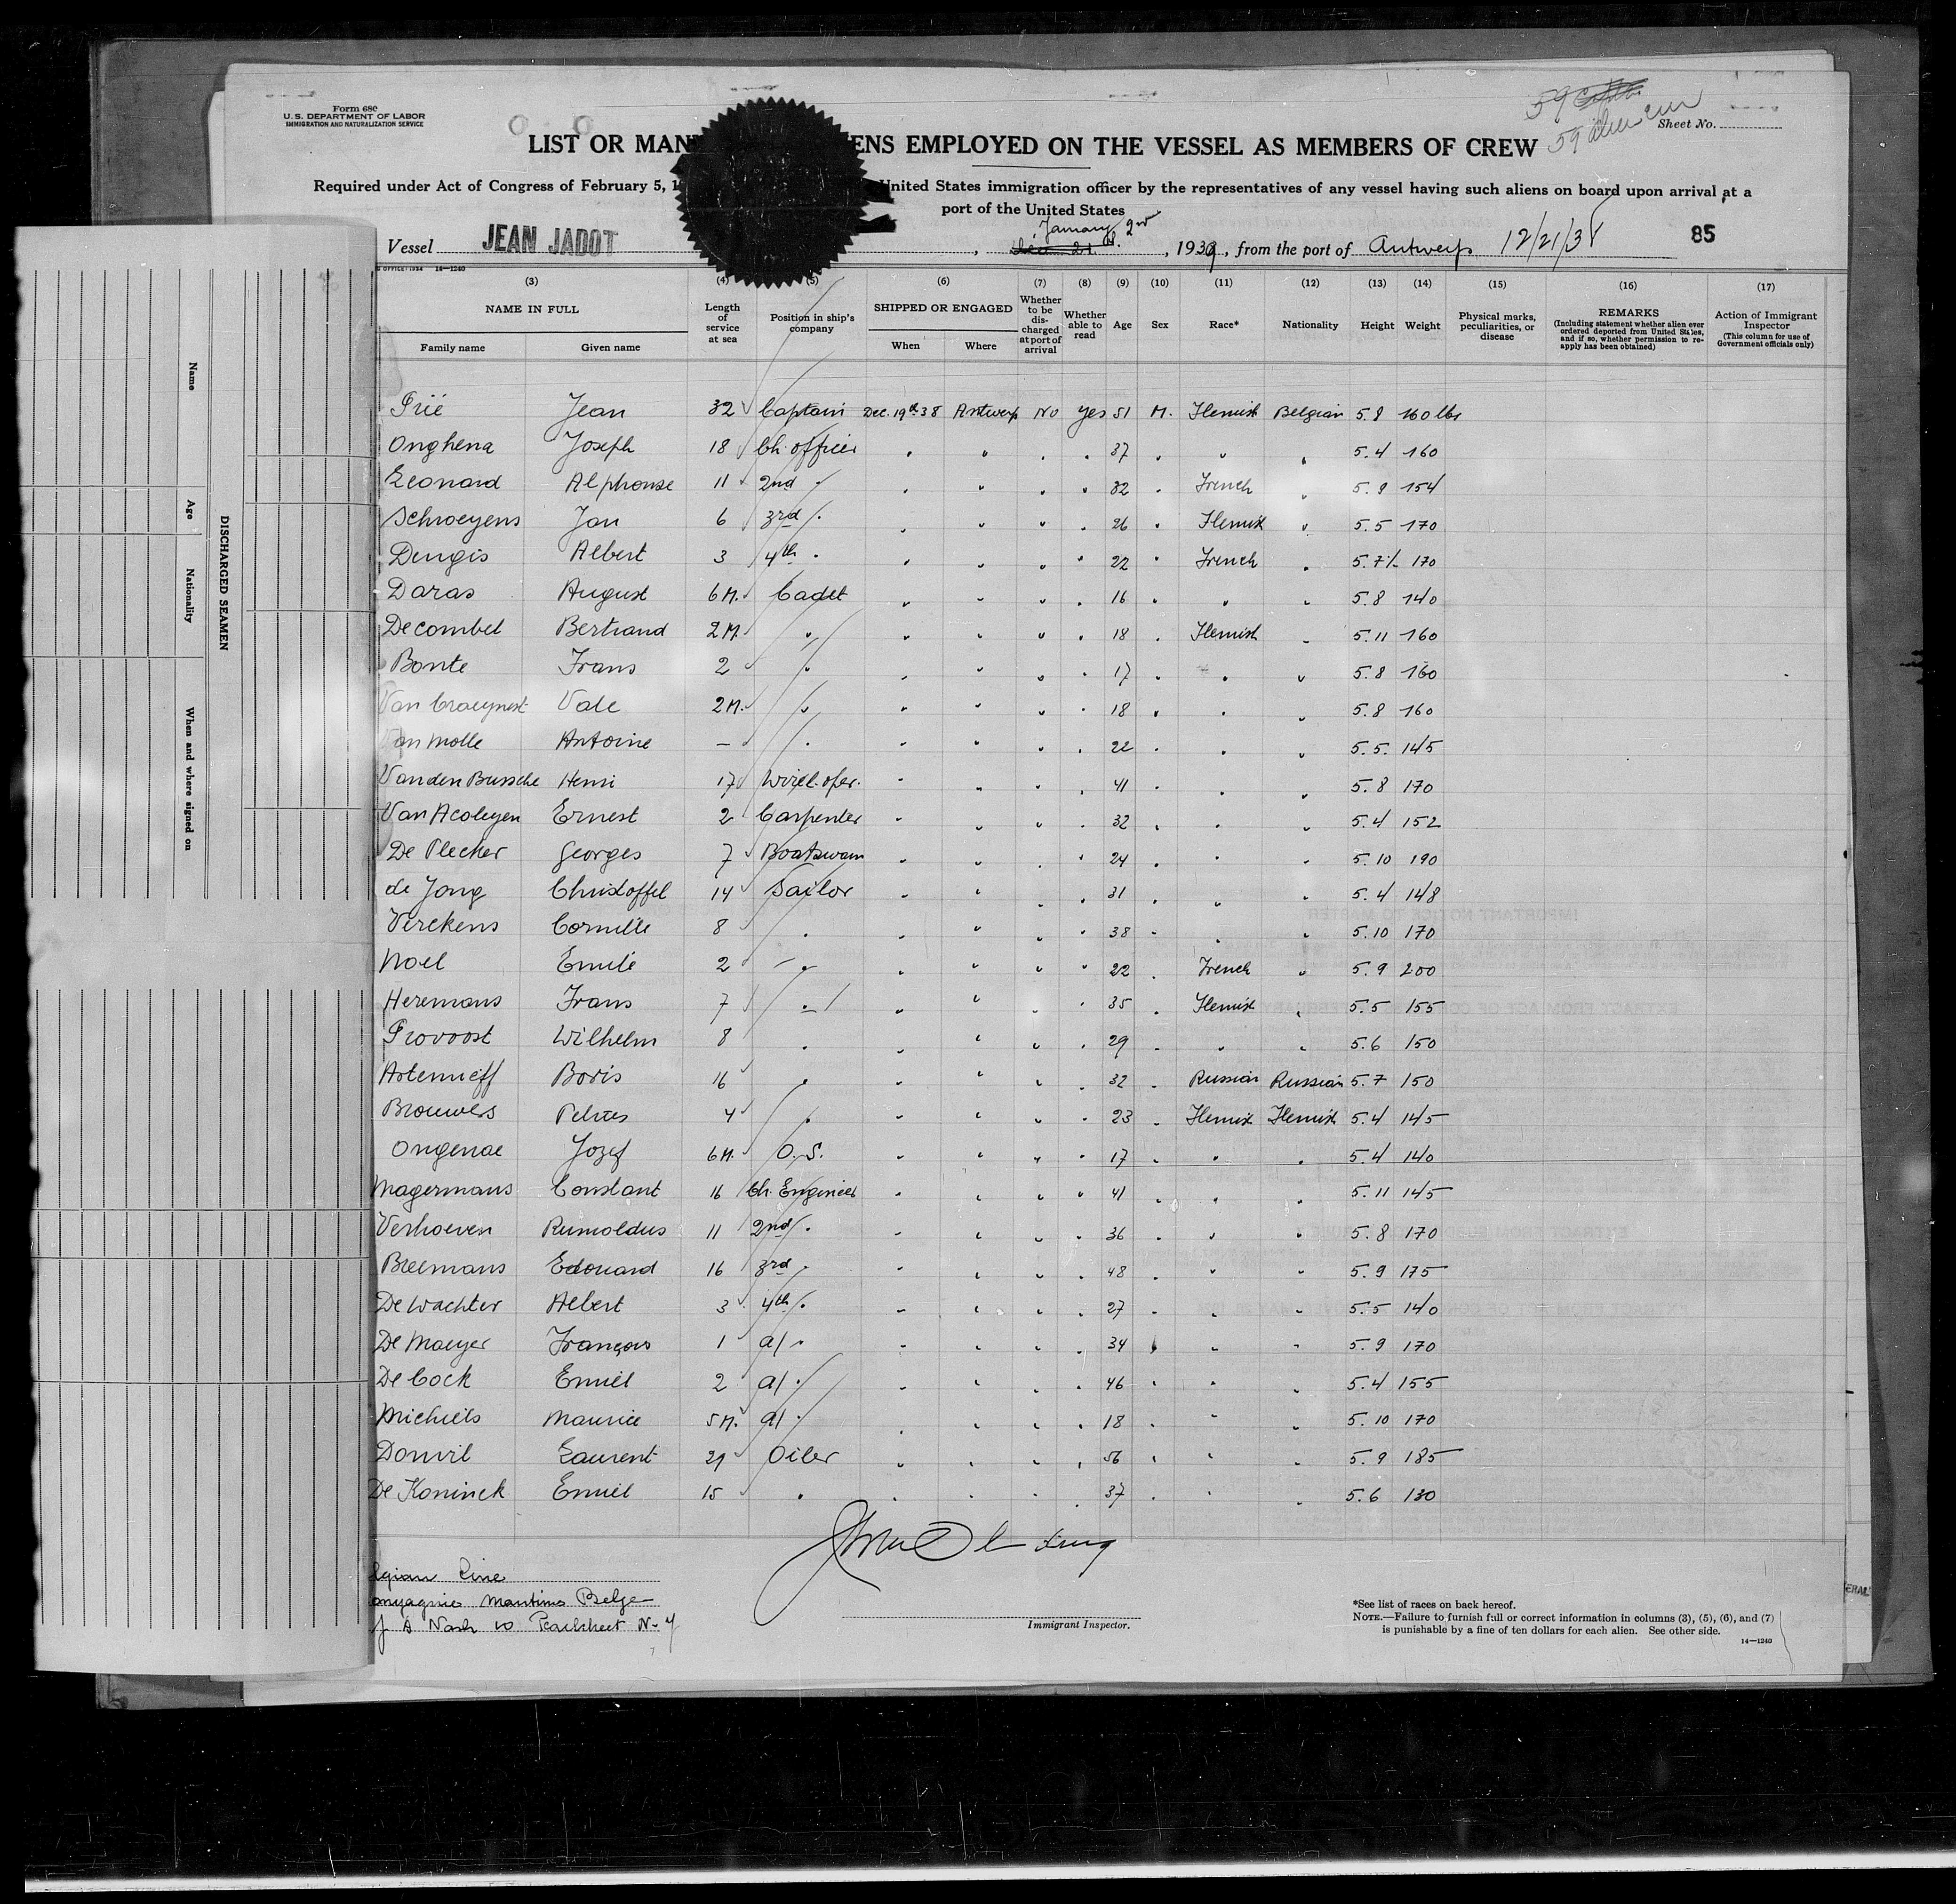 Form 680
U.S. DEPARTMENT OF LABOR
IMMIGRATION AND NATURALIZATION SERVICE
59 alien crew
Sheet No.
LIST OR MAN ENS EMPLOYED ON THE VESSEL AS MEMBERS OF CREW
Required under Act of Congress of February 5, 1 United States immigration officer by the representatives of any vessel having such aliens on board upon arrival at a
port of the United States
Vessel JEAN JADOT , January 2nd , 1939, from the port of Antwerp 12/21/38 85
14—1240
(3) (4) (5) (6) (7) (8) (9) (10) (11) (12) (13) (14) (15) (16) (17)
NAME IN FULL
Family name Given name
Length of service at sea
Position in ship's company
SHIPPED OR ENGAGED
When Where
Whether to be discharged at port of arrival
Whether able to read
Age Sex Race* Nationality Height Weight
Physical marks, peculiarities, or disease
REMARKS
(Including statement whether alien ever ordered deported from United States, and if so, whether permission to reapply has been obtained)
Action of Immigrant Inspector
(This column for use of Government officials only)
Jean 32 Captain Dec. 19th 38 Antwerp No yes 51 M. Flemish Belgian 5.8 160 lbs
Onghena Joseph 18 Ch. officer " " " " 37 " " " 5.4 160
Leonard Alphonse 11 2nd " " " " " 32 " French " 5.9 154
Schroeyens Jan 6 3rd " " " " " 26 " Flemish " 5.5 170
Dengis Albert 3 4th " " " " " 22 " French " 5.7½ 170
Daras August 6M. Cadet " " " " 16 " " " 5.8 140
Decombel Bertrand 2M. " " " " " 18 " Flemish " 5.11 160
Bonte Frans 2 " " " " " 17 " " 5.8 160
Van Craeynest Vale 2M. " " " " " 18 " " " 5.8 160
Van Molle Antoine — " " " " " 22 " " " 5.5. 145
Vanden Bussche Henri 17 Wirel. oper. " " " " 41 " " " 5.8 170
Van Acoleyen Ernest 2 Carpenter " " " " 32 " " " 5.4 152
De Plecker Georges 7 Boatswain " " " " 24 " " " 5.10 190
de Jong Christoffel 14 Sailor " " " " 31 " " " 5.4 148
Verekens Corneille 8 " " " " " 38 " " " 5.10 170
Noel Emile 2 " " " " " 22 " French " 5.9 200
Heremans Frans 7 " " " " 35 " Flemish " 5.5 155
Provoost Wilhelm 8 " " " " " 29 " " " 5.6 150
Artemieff Boris 16 " " " " " 32 " Russian Russian 5.7 150
Brouwers Petrus 4 " " " " " 23 " Flemish Flemish 5.4 145
Ongenae Jozef 6M. O.S. " " " " 17 " " " 5.4 140
Magermans Constant 16 Ch. Engineer " " " " 41 " " " 5.11 145
Verhoeven Rumoldus 11 2nd " " " " " 36 " " " 5.8 170
Breemans Edouard 16 3rd " " " " " 48 " " " 5.9 175
De Wachter Albert 3 4th " " " " " 27 " " " 5.5 140
De Maeyer François 1 a/ " " " " " 34 " " " 5.9 170
De Cock Emiel 2 a/ " " " " " 46 " " " 5.4 155
Michiels Maurice 5M. a/ " " " " " 18 " " " 5.10 170
Donvil Laurent 29 Oiler " " " " 56 " " " 5.9 185
De Koninck Emiel 15 " " " " " 37 " " " 5.6 130
lgian Line
Maritime Belge
J A Nash 10 Pearlstreet N-Y
Immigrant Inspector.
*See list of races on back hereof.
NOTE.—Failure to furnish full or correct information in columns (3), (5), (6), and (7)
is punishable by a fine of ten dollars for each alien. See other side.
14—1240
DISCHARGED SEAMEN
Name
Age
Nationality
When and where signed on